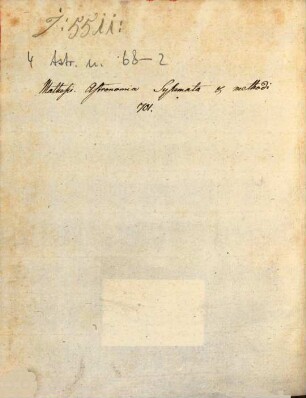 J: 55 ii:
4 Astr. u. 68-2
Mathes. Astronomia Systemata & methodi
701.